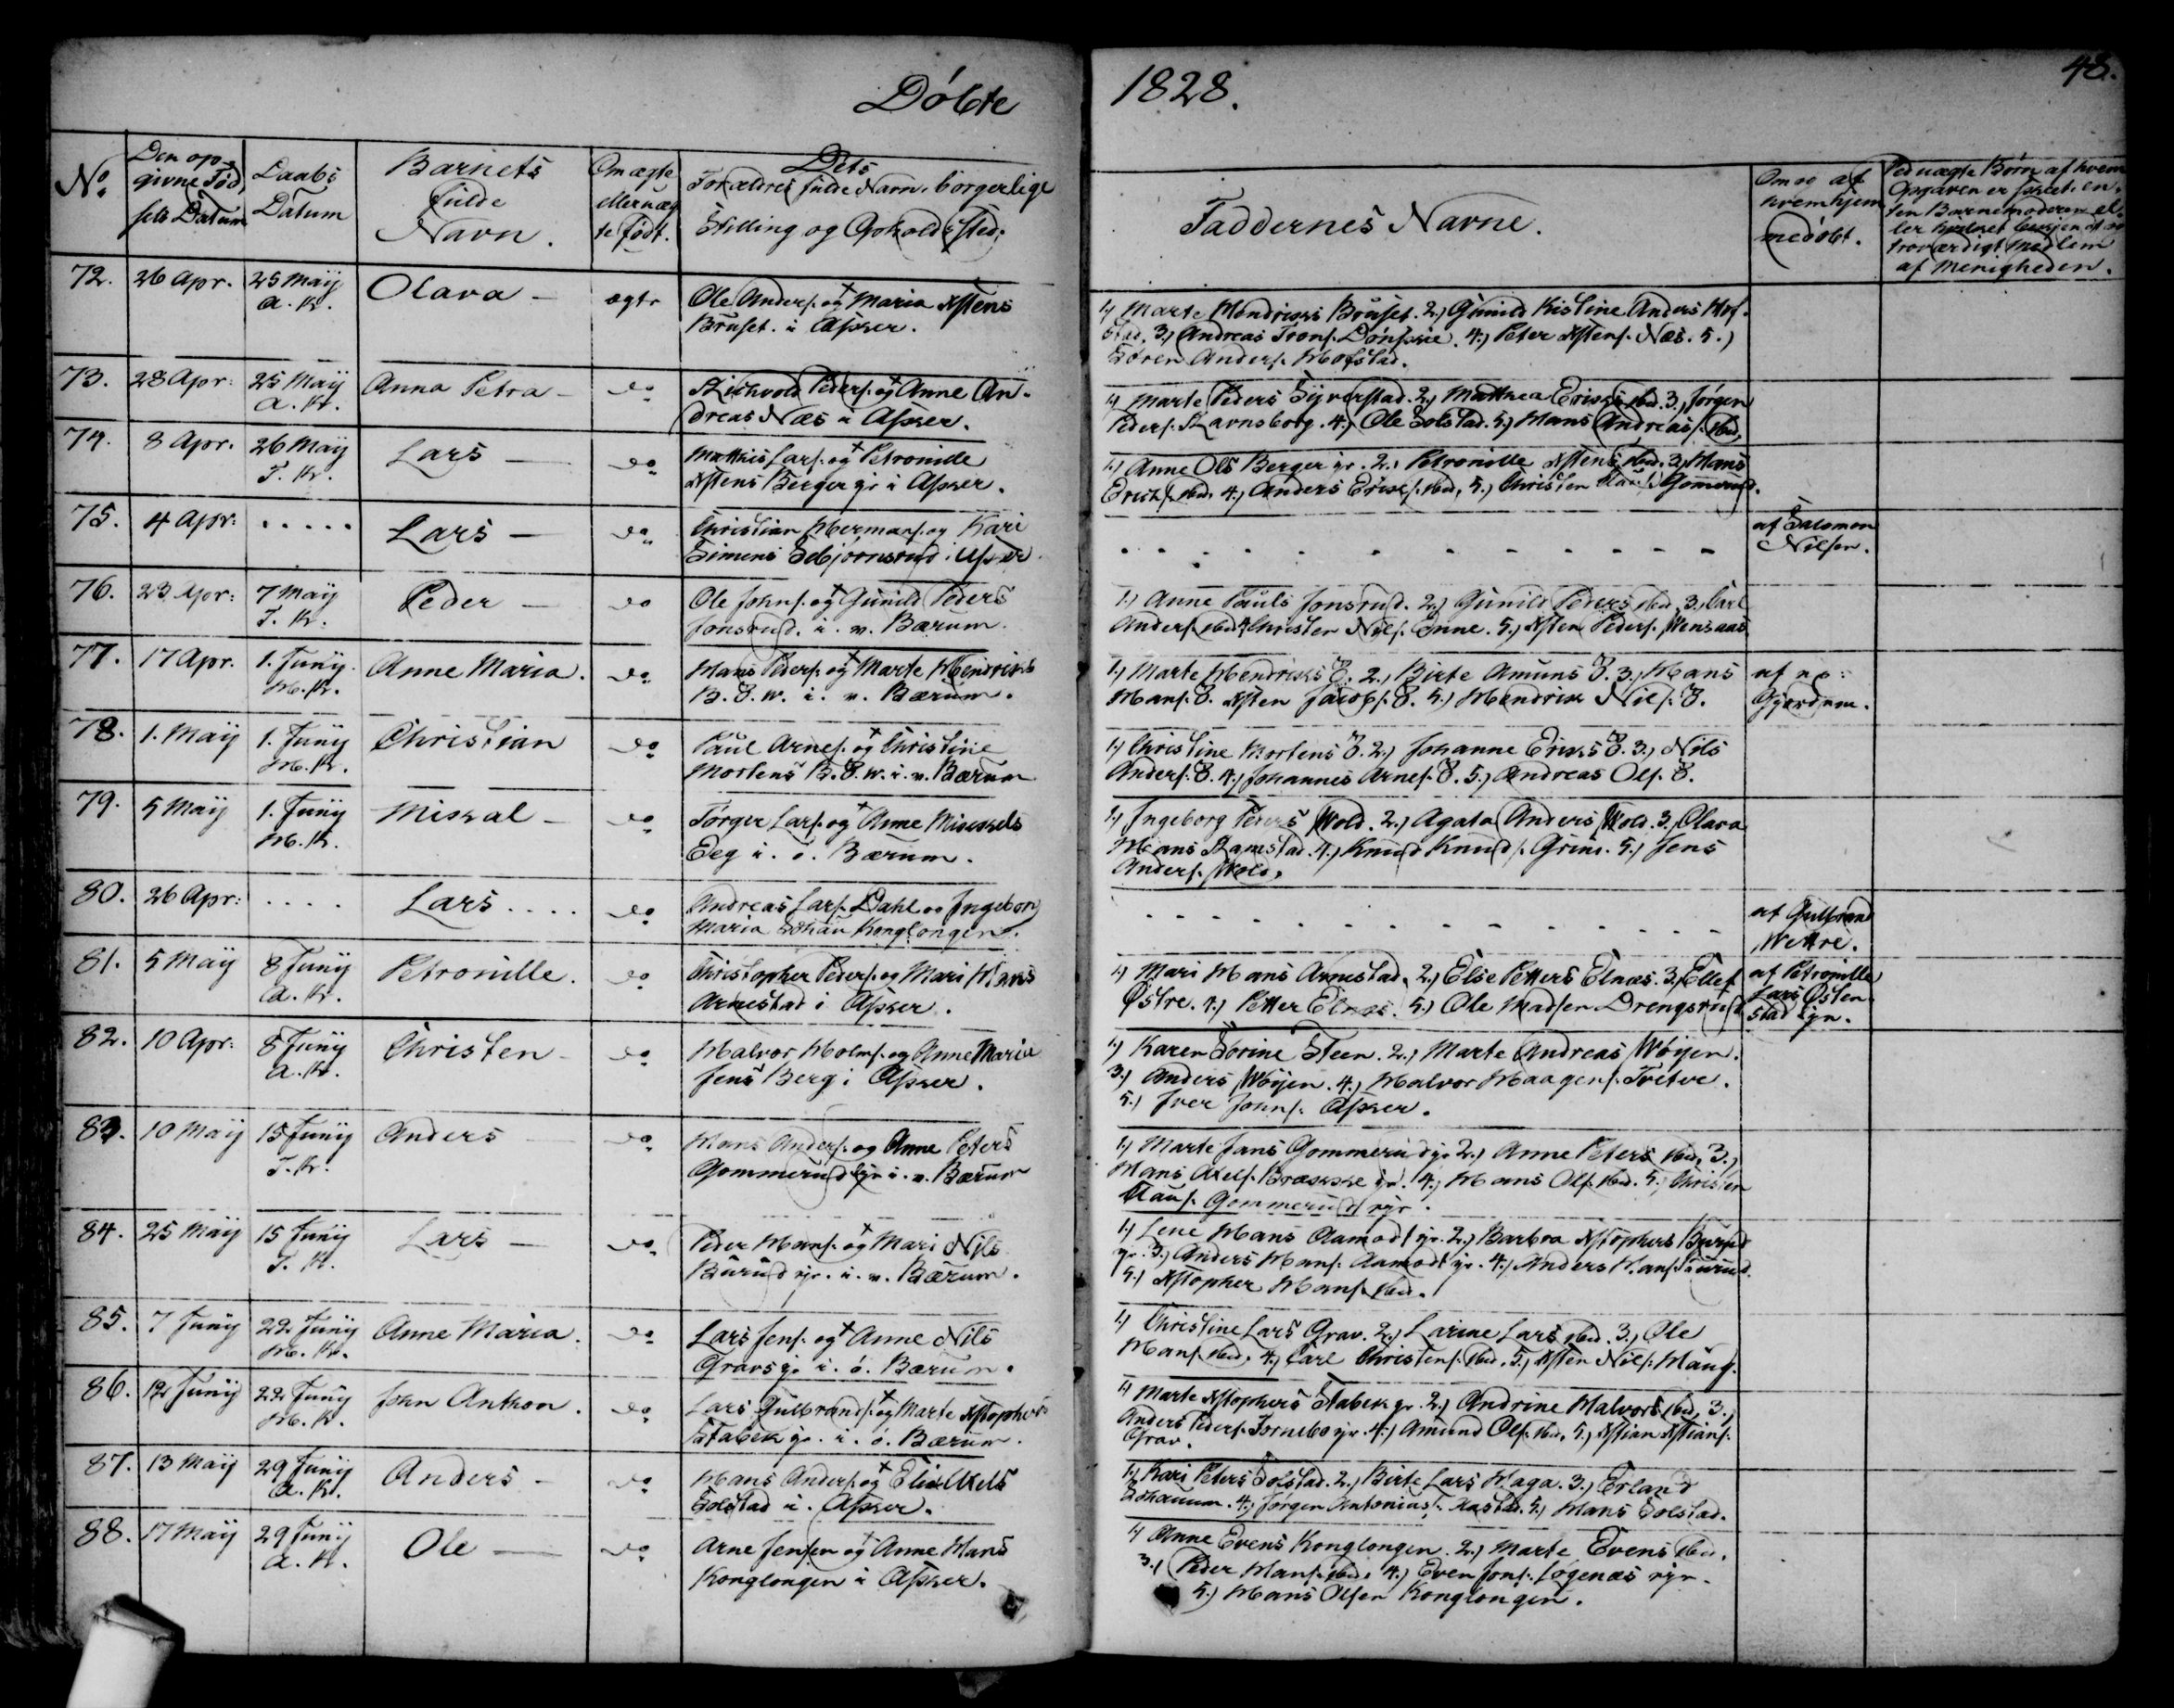 Döbte 1828.
48.
No.
Den op-
givne Föd,
sels Datum
Daabs
Datum
Barnets
fulde
Navn.
Om ægte
eller uæg
te födt.
Dets
Forældres fulde Navn, borgerlige
Stilling og Opholdssted.
Faddernes Navne.
Om og af
hvem hjem
medöbt.
Ved uægte Börn af hvem
Opgaven er skeet, en-
ten Barnemoderen el-
ler
troværdigt Medlem
af Menigheden.
72. 26 Apr. 25 Maij Olava - ægte Ole Anders. og + Maria Xstens
a. K. Bruset. i Asker.
1.) Marte Hendriks Bruset. 2.) Gunild Kistine Anders Hof-
stad, 3.) Andreas Trons. Dönskie. 4.) Peter Xstens. Næs. 5.)
Sören Anders. Hofstad.
73. 28 Apr: 25 Maij Anna Petra - do Peders. og + Anne An-
a. K. dreas Næs i Asker.
1.) Marte Peders Syverstad. 2.) Mathea Eriks ibid. 3.) Jörgen
Peders. Ravnsborg. 4.) Ole Solstad. 5.) Hans Andreas. ibid.
74. 8 Apr. 26 Maij Lars - do Mathis Lars. og + Petronille
T. K. Xstens Berger gr i Asker.
1.) Anne Ols Berger gr. 2.) Petronille Xstens ibid. 3.) Hans
Erichs. ibid. 4.) Anders Eriks. ibid. 5.) Christen Gomerud.
75. 4 Apr: ..... Lars - do Christian Hermans. og Kari
Simens Sebjörnsrud i Asker.
af Salomon
Nilsen.
76. 23 Apr: 7 Maij Peder - do Ole Johns. og + Gunild Peders
T. K. Jonsrud. i. v. Bærum.
1.) Anne Pauls Jonsrud. 2.) Gunild Peders ibid. 3.) Carl
Anders. ibid. 4.) Christen Nils. Enne. 5.) Xsten Peders. Wensaas
77. 17 Apr. 1. Juny Anne Maria. do Hans Peders. og + Marte Hendriks
H. K. B. 8. w. i. v. Bærum.
1.) Marte Hendriks 8. 2.) Birte Amuns 8. 3.) Hans
Hans. 8. Xsten Jacobs. 8. 5.) Hendrik Nils. 8.
af
Gjerdrum.
78. 1. Maij 1. Juny Christian do Paul Arnes. og + Christine
H. K. Mortens B. 8. w. i. v. Bærum
1.) Christine Mortens 8. 2.) Johanne Eriks 8. 3.) Nils
Anders. 8. 4.) Johannes Arnes. 8. 5.) Andreas Ols. 8.
79. 5 Maij 1. Juny Miskal - do Torger Lars. og + Anne Mickels
H. K. Eeg i. ö. Bærum.
1.) Ingeborg Peters Wold. 2.) Agata Anders Wold. 3.) Olava
Hans Ramstad. 4.) Knud Knuds. Grini. 5.) Jens
Anders. Wold.
80. 26 Apr: .... Lars .... do Andreas Lars. Dahl og Ingeborg
Maria Konglongen.
af Gulbrand
Wettre.
81. 5 Maij 8 Juny Petronille. do Christopher Peders. og Mari Hans
a. K. Arnestad i Asker.
1.) Mari Hans Arnestad. 2.) Else Petters Elnæs. 3.) Ellef
Östre. 4.) Petter Elnæs. 5.) Ole Madsen Drengsrud
af Petronille
Lars Östen
stad
82. 10 Apr: 8 Juny Christen - do Halvor Holms. og Anne Maria
a. K. Jens Berg i Asker.
1.) Karen Sorine Steen. 2.) Marte Andreas Wöyen.
3.) Anders Wöyen. 4.) Halvor Haagens. Tveter.
5.) Iver Johns. Asker.
83. 10 Maij 15 Juny Anders do Hans Anders. og Anne Peters
T. K. Gommerud gr i. v. Bærum
1.) Marte Jans Gommerud gr 2.) Anne Peters ibid. 3.)
Hans Axels. Brække gr. 4.) Hans Ols. ibid. 5.) Christen
Claus. Gommerud gr.
84. 25 Maij 15 Juny Lars - do Peder Hans. og + Mari Nils
T. K. Burud gr. i. v. Bærum.
1.) Lene Hans Aamodt gr. 2.) Barbra Xstophers Burud
gr. 3.) Anders Hans. Aamodt gr. 4.) Anders Hans. Burud.
5.) Xstopher Hans. ibid.
85. 7 Juny 22 Juny Anne Maria. do Lars Jens. og + Anne Nils
H. K. Gravs gr i. ö. Bærum.
1.) Christine Lars Grav. 2.) Larine Lars ibid. 3.) Ole
Hans. ibid. 4.) Carl Christens. ibid. 5.) Xsten Nils. Haug.
86. 12 Juny 22 Juny John Anthon. do Lars Gulbrands. og + Marte Xstophers
H. K. Stabek gr. i. ö. Bærum.
1.) Marte Xstophers Stabek gr. 2.) Andrine Halvors ibid. 3.)
Anders Peders. Fornebo gr. 4.) Amund Ols. ibid. 5.) Xstian Xstians.
Grav.
87. 13 Maij 29 Juny Anders - do Hans Anders. og + Elie Axels
a. K. Solstad i. Asker.
1.) Kari Peters Solstad. 2.) Birte Lars Haga. 3.) Erland
4.) Jörgen Antonius. 5.) Hans Solstad.
88. 17 Maij 29 Juny Ole - do Arne Jensen og + Anne Hans
a. K. Konglongen i Asker.
1.) Anne Evens Konglongen. 2.) Marte Evens ibid.
3.) Peder Hans. ibid. 4.) Even Jons. Løgenæs gr.
5.) Hans Olsen Konglongen.